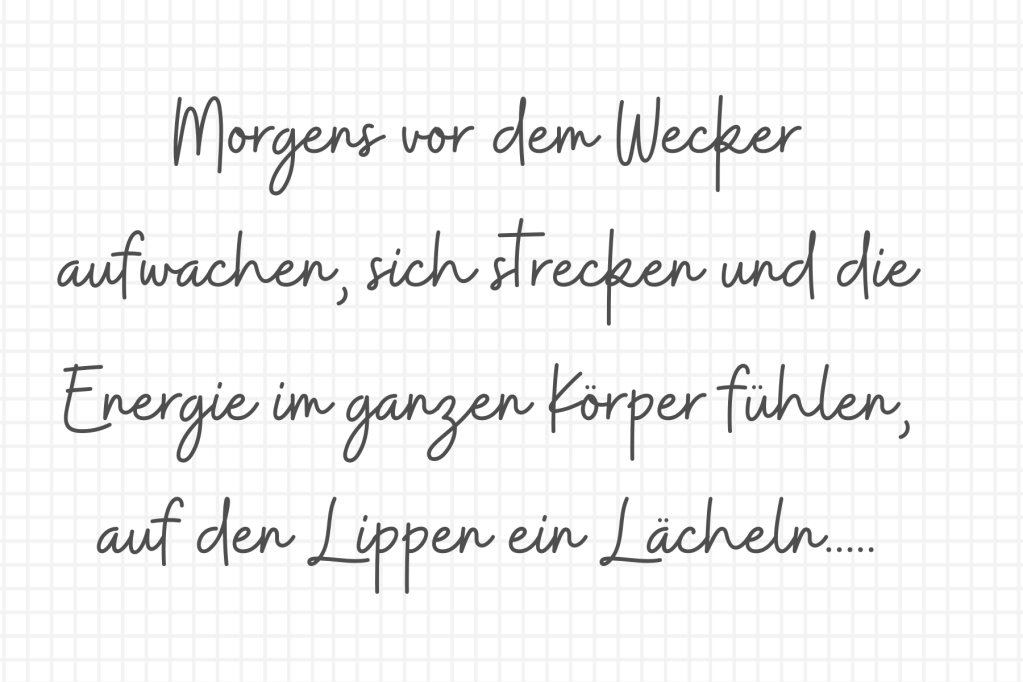 Morgens vor dem Wecker
aufwachen, sich strecken und die
Energie im ganzen Körper fühlen,
auf den Lippen ein Lächeln.....